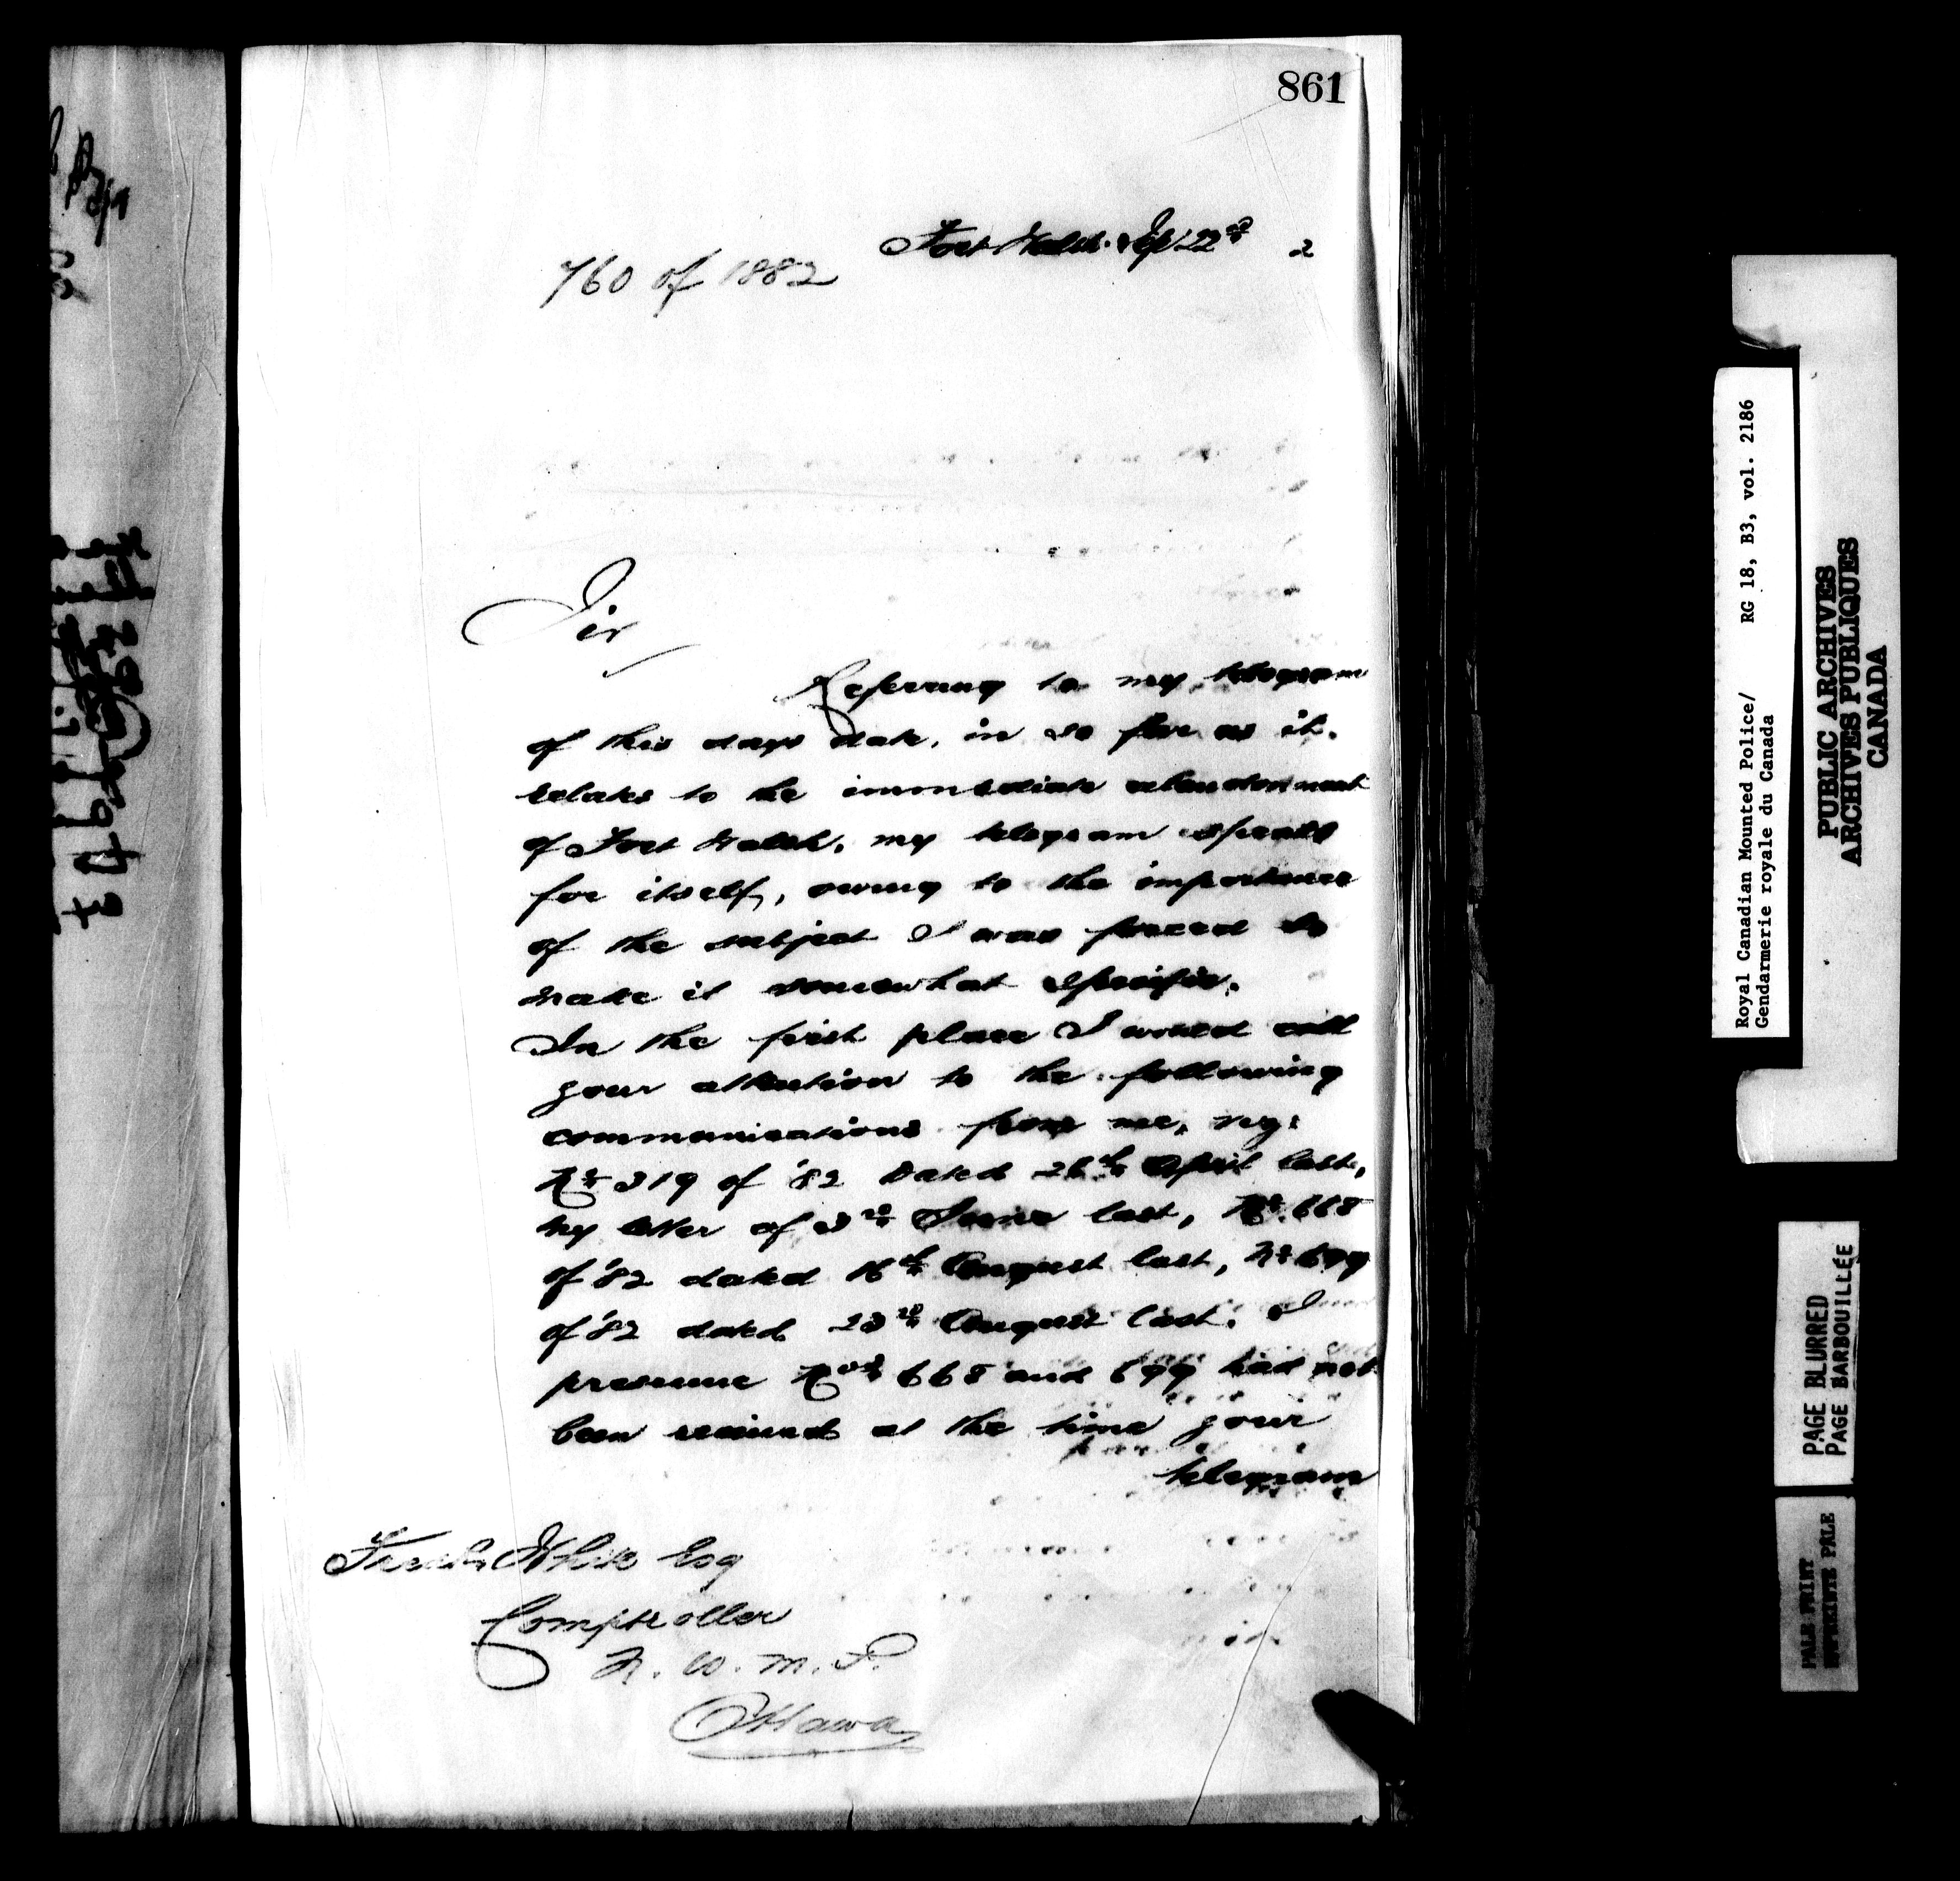 861
Fort Walsh. Sep 22nd 2
760 of 1882
Sir
Referring to my telegram
of this days date, in so far as it
relates to the immediate abandonment
of Fort Walsh, my telegram speaks
for itself, owing to the importance
of the subject I was forced to
make it somewhat specific.
In the first place I would call
your attention to the following
communications from me,
No 319 of '82 dated 26th April last,
My letter of 3rd June last, No 668
of '82 dated 16th August last, No 699
of '82 dated 23rd August last. I
presume Nos 668 and 699 had not
been received at the time your
telegram
Fredk White Esq
Comptroller
N. W. M. P.
Ottawa
Royal Canadian Mounted Police/ RG 18, B3, vol. 2186
Gendarmerie royale du Canada
PUBLIC ARCHIVES
ARCHIVES PUBLIQUES
CANADA
PAGE BLURRED
PAGE BARBOUILLÉE
PALE PRINT
IMPRIMÉE PALE